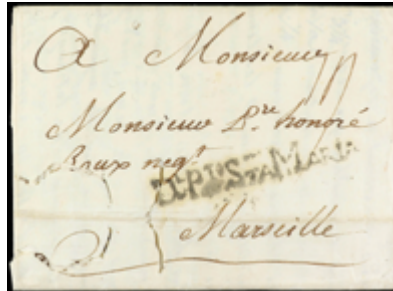 A Monsieur
Monsieur P.re honoré
Roux negt.
Pto STA MARIA
Marseille